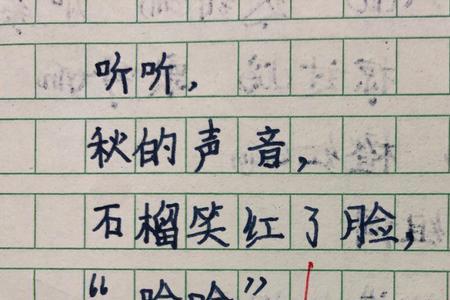 听听，
秋的声音，
石榴笑红了脸，